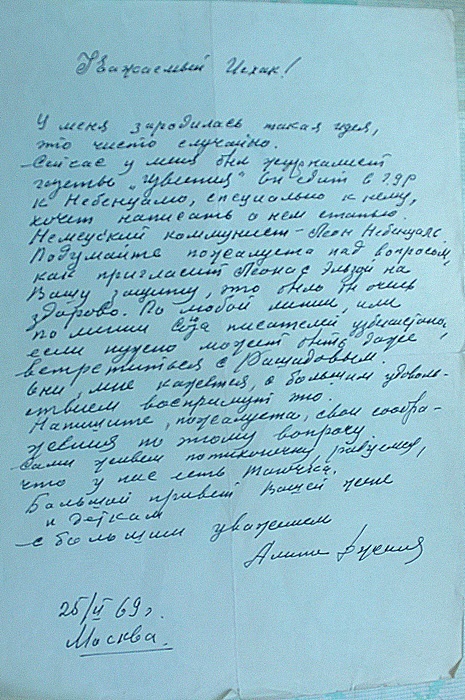 Уважаемый Исхак!
У меня зародилась такая идея,
это чисто случайно.
Сейчас у меня был журналист
газеты „Известия" он едит в ГДР
к Небенцалю, специально к нему,
хочет написать о нем статью.
Немецкий коммунист - Леон Небенцаль
Подумайте пожалуста над вопросом,
как пригласить Леона с Эльзой на
Вашу защиту, это было бы очень
здорово. По любой линии, или
по линии Союза писателей Узбекистана,
если нужно может быть даже
встретиться с Рашидовым.
Они, мне кажется, с большим удоволь-
ствием воспримут это.
Напишите, пожалуста, свои сообра-
жения по этому вопросу
Сами живем потихонечку, радуемся,
что у нас есть
Большой привет Вашей жене
и деткам
с большим уважением
25/II 69 г.
Москва.